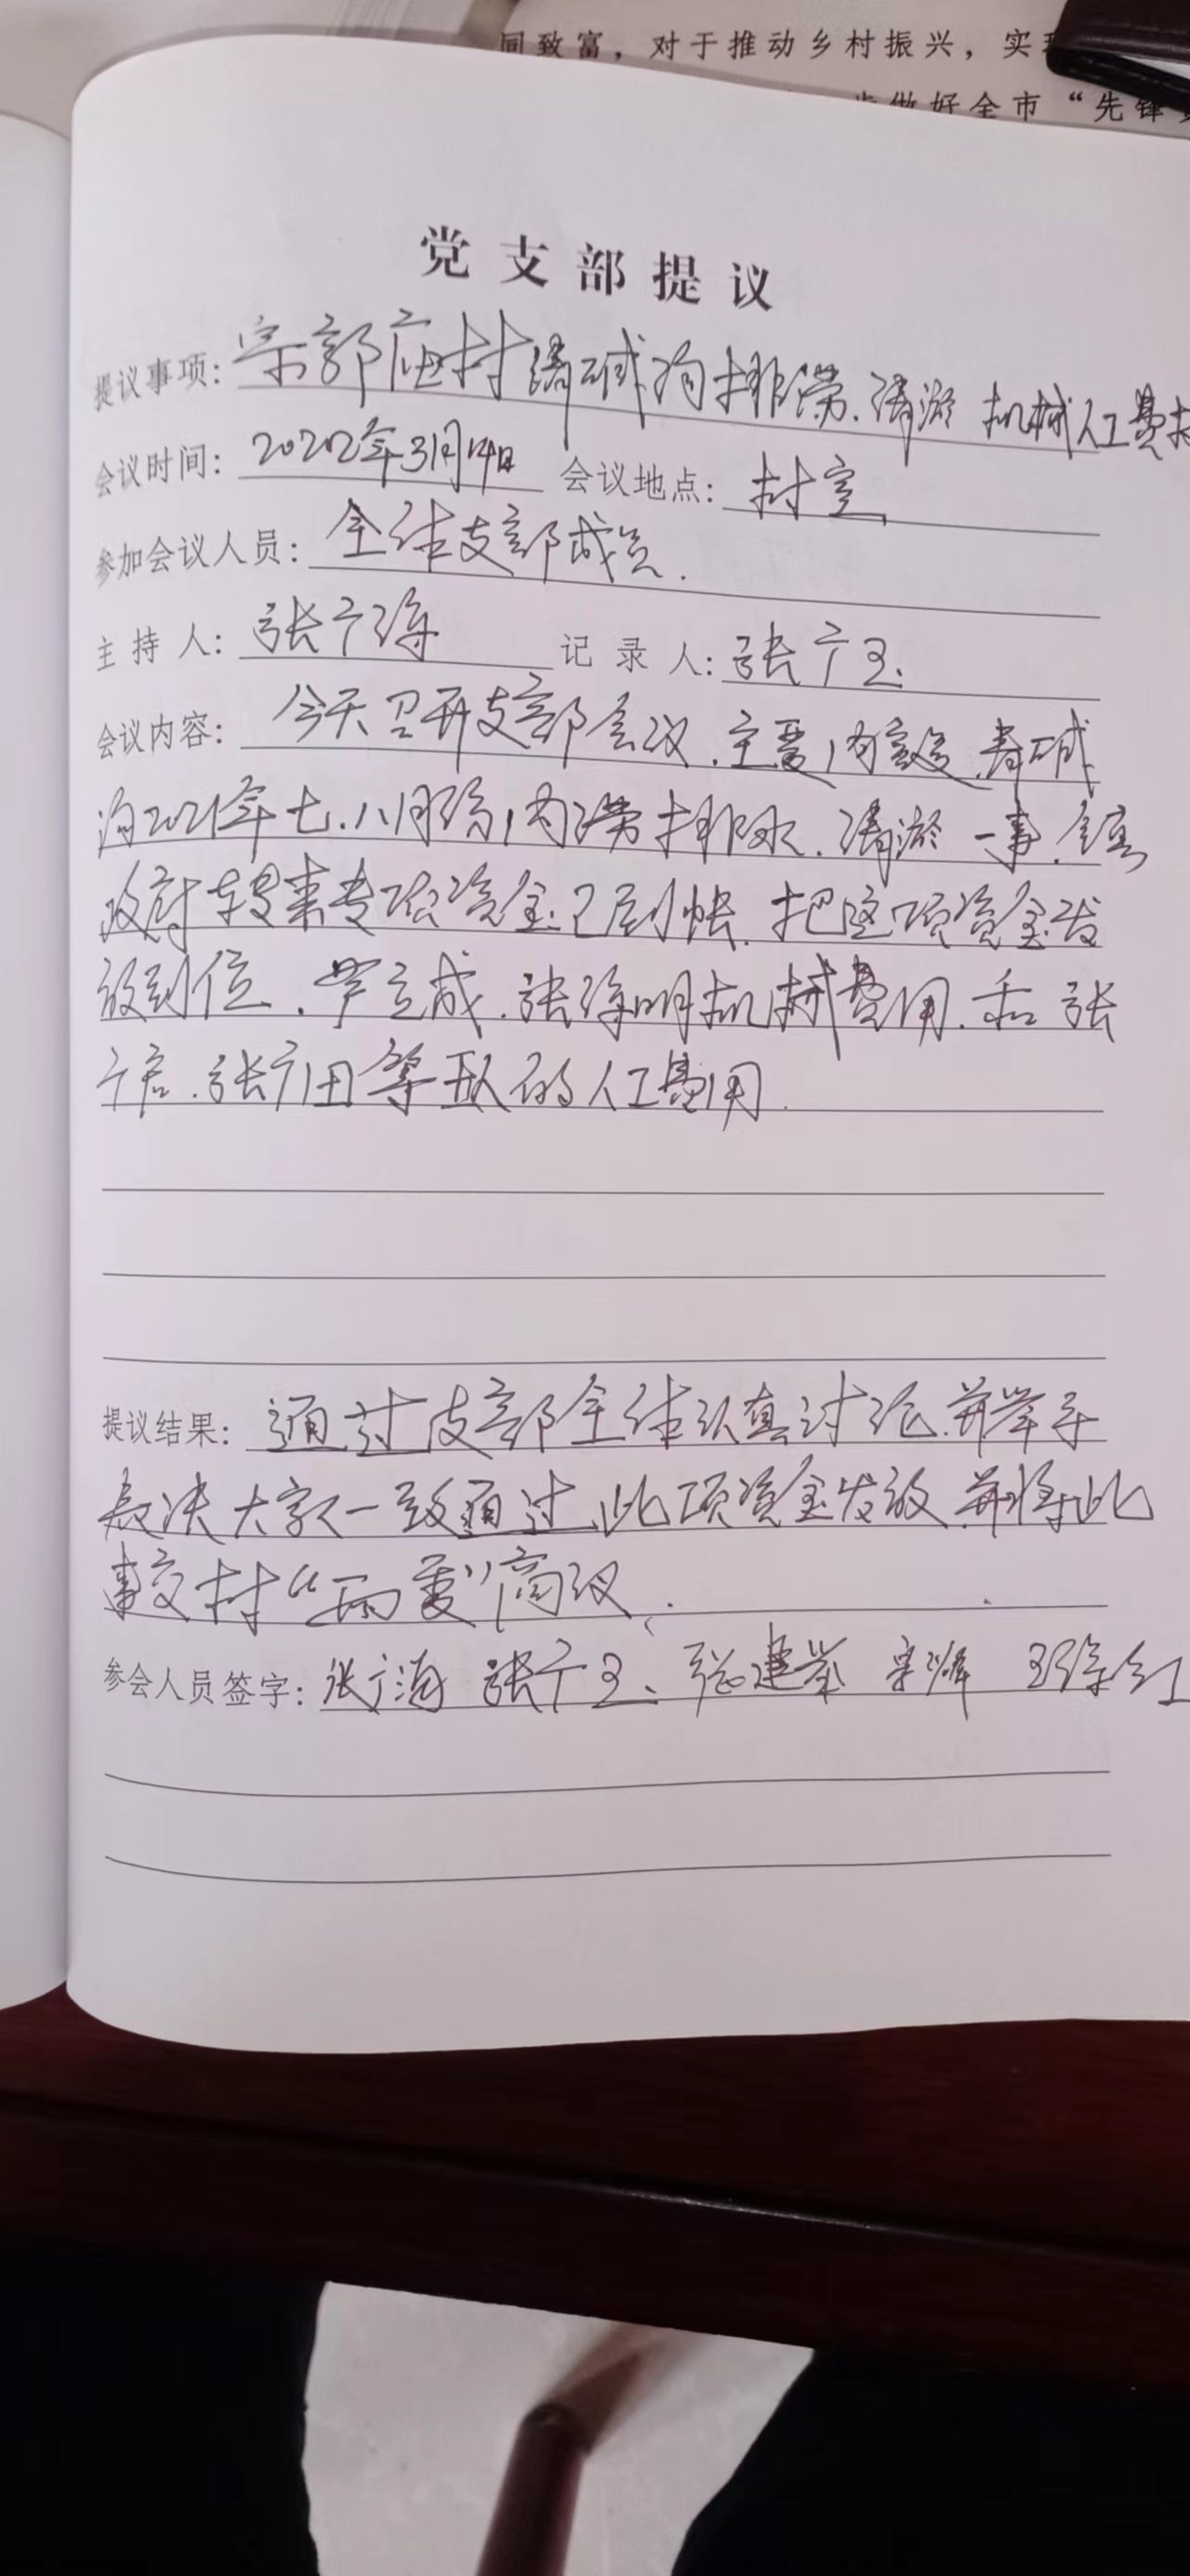 同致富，对于推动乡村振兴，实
做好全市“先锋
党支部提议
提议事项：宋郭庄村 碱沟排涝.清淤 机械人工费
会议时间：2022年3月14日 会议地点：村室
参加会议人员：全体支部成员.
主持人：张广 记录人：张广玉.
会议内容：今天召开支部会议.主要内容是 碱
沟2021年七.八月份内涝排水.清淤一事.镇
政府转来专项资金已到帐.把这项资金发
放到位.罗立成.张 明机械费用.和张
广 .张广田等五人的人工费用.
提议结果：通过支部全体认真讨论.并举手
表决大家一致通过.此项资金发放.并将此
事交村“两委”商议.
参会人员签字：张广海 张广玉、张建举 宋 红